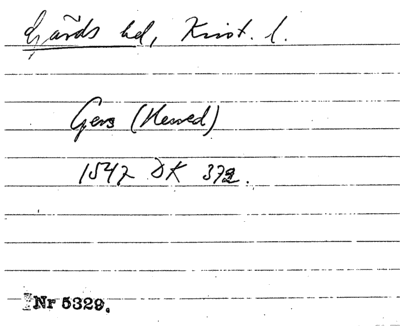 Gärds hd, Krist. l.
Gers (Herred)
1547 DK 372.
Nr 5329.